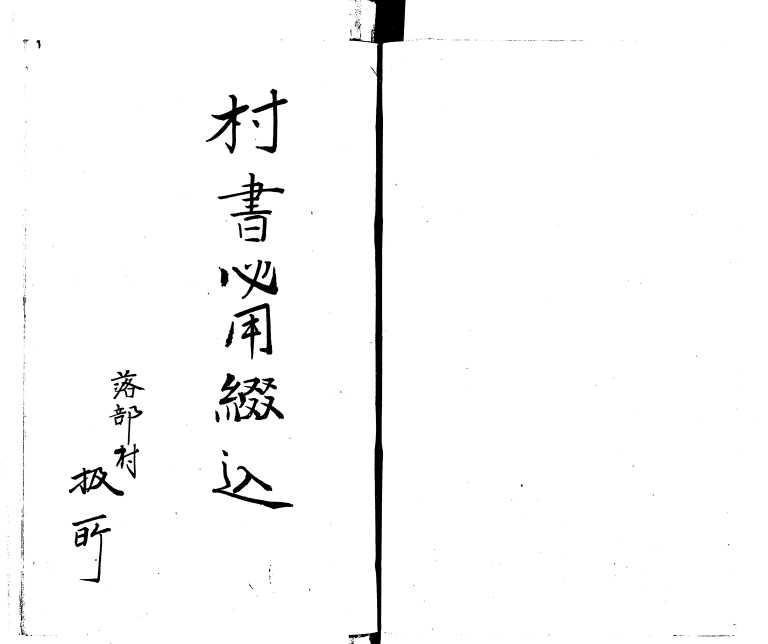 1
村書必用綴込
落部村
扱所